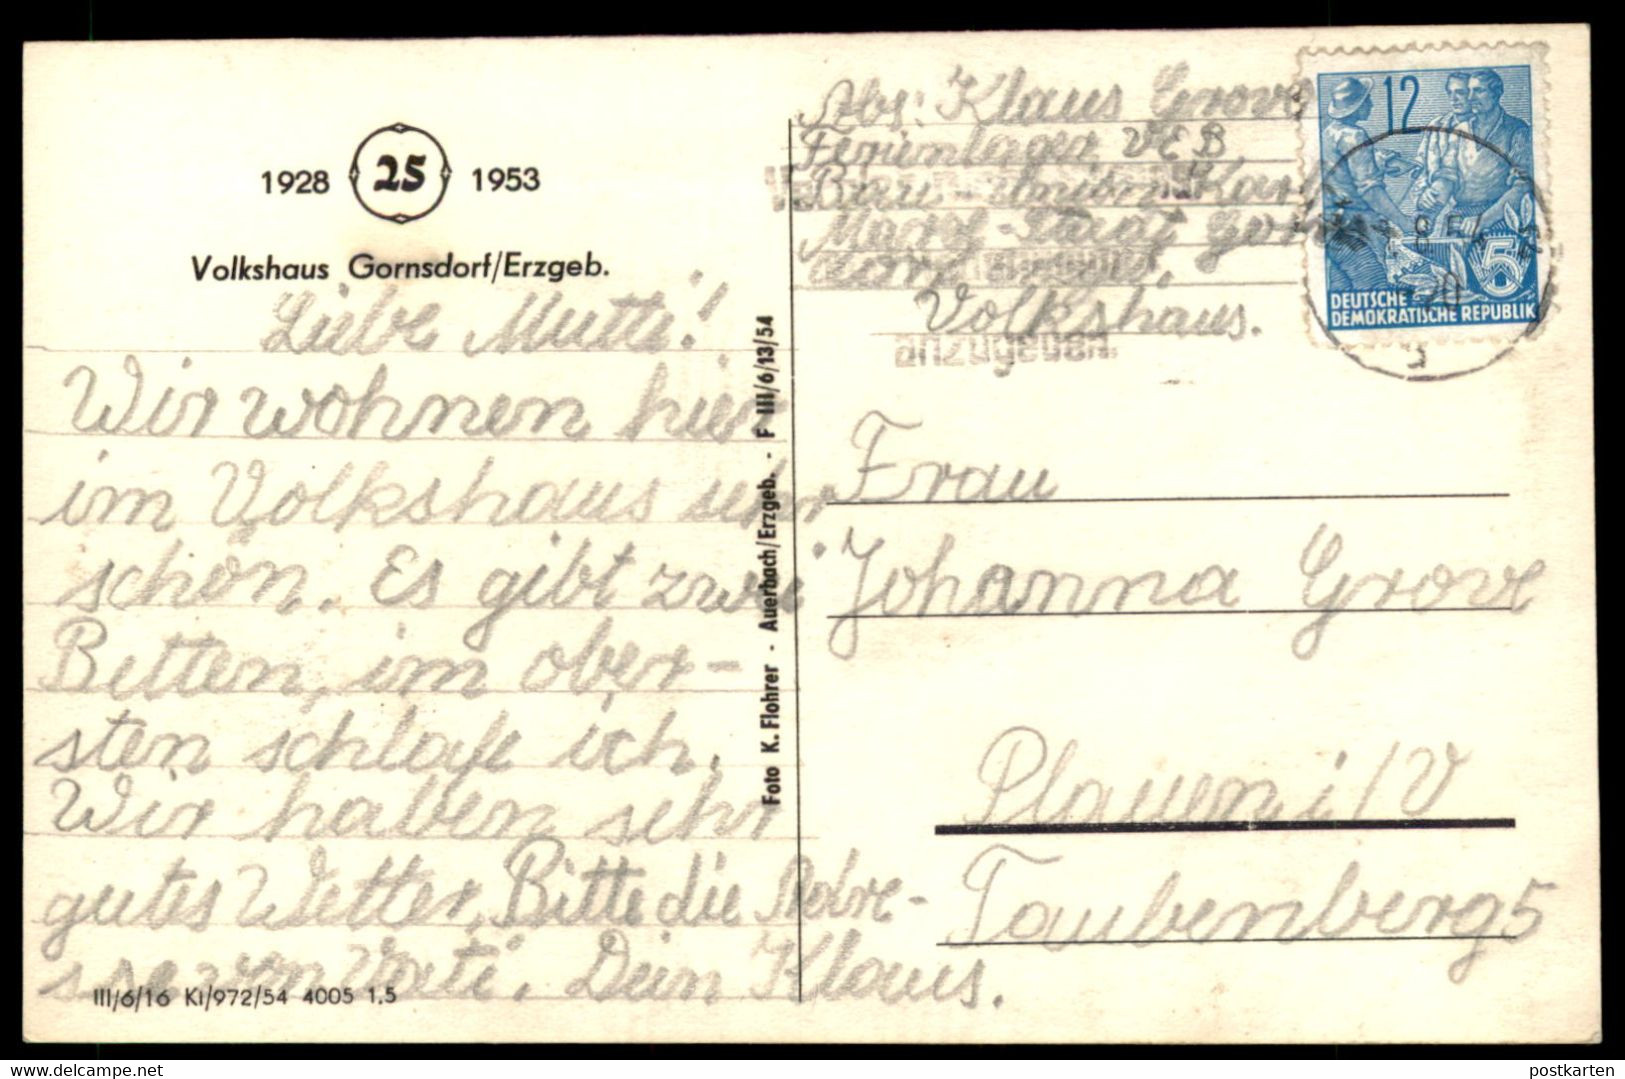 1928 25 1953
Volkshaus Gornsdorf/Erzgeb.
Liebe Mutti!
Wir wohnen hier
im Volkshaus sehr
schön. Es gibt zwei
Betten, im ober-
sten schlafe ich.
Wir haben sehr
gutes Wetter. Bitte die Adre-
sse von Vati. Dein Klaus.
III/6/16 KI/972/54 4005 1,5
Foto K. Flohrer - Auerbach/Erzgeb. - F III/6/13/54
Abs: Klaus Grove
Ferienlager VEB
Marx-Stadt
Volkshaus.
anzugeben.
12
DEUTSCHE
DEMOKRATISCHE REPUBLIK
5
Frau
Johanna Grove
Plauen i/V
Taubenberg 5
postkarten